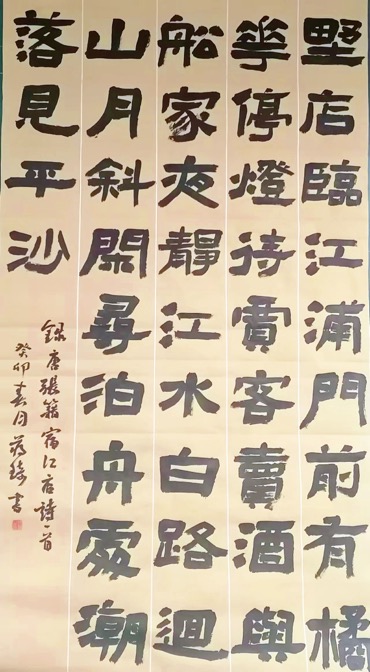 墅店臨江浦門前有橘
華停燈待賈客賣酒與
船家夜靜江水白路迴
山月斜閑尋泊舟處潮
落見平沙
録唐張籍宿江店詩一首
癸卯春月蔣書